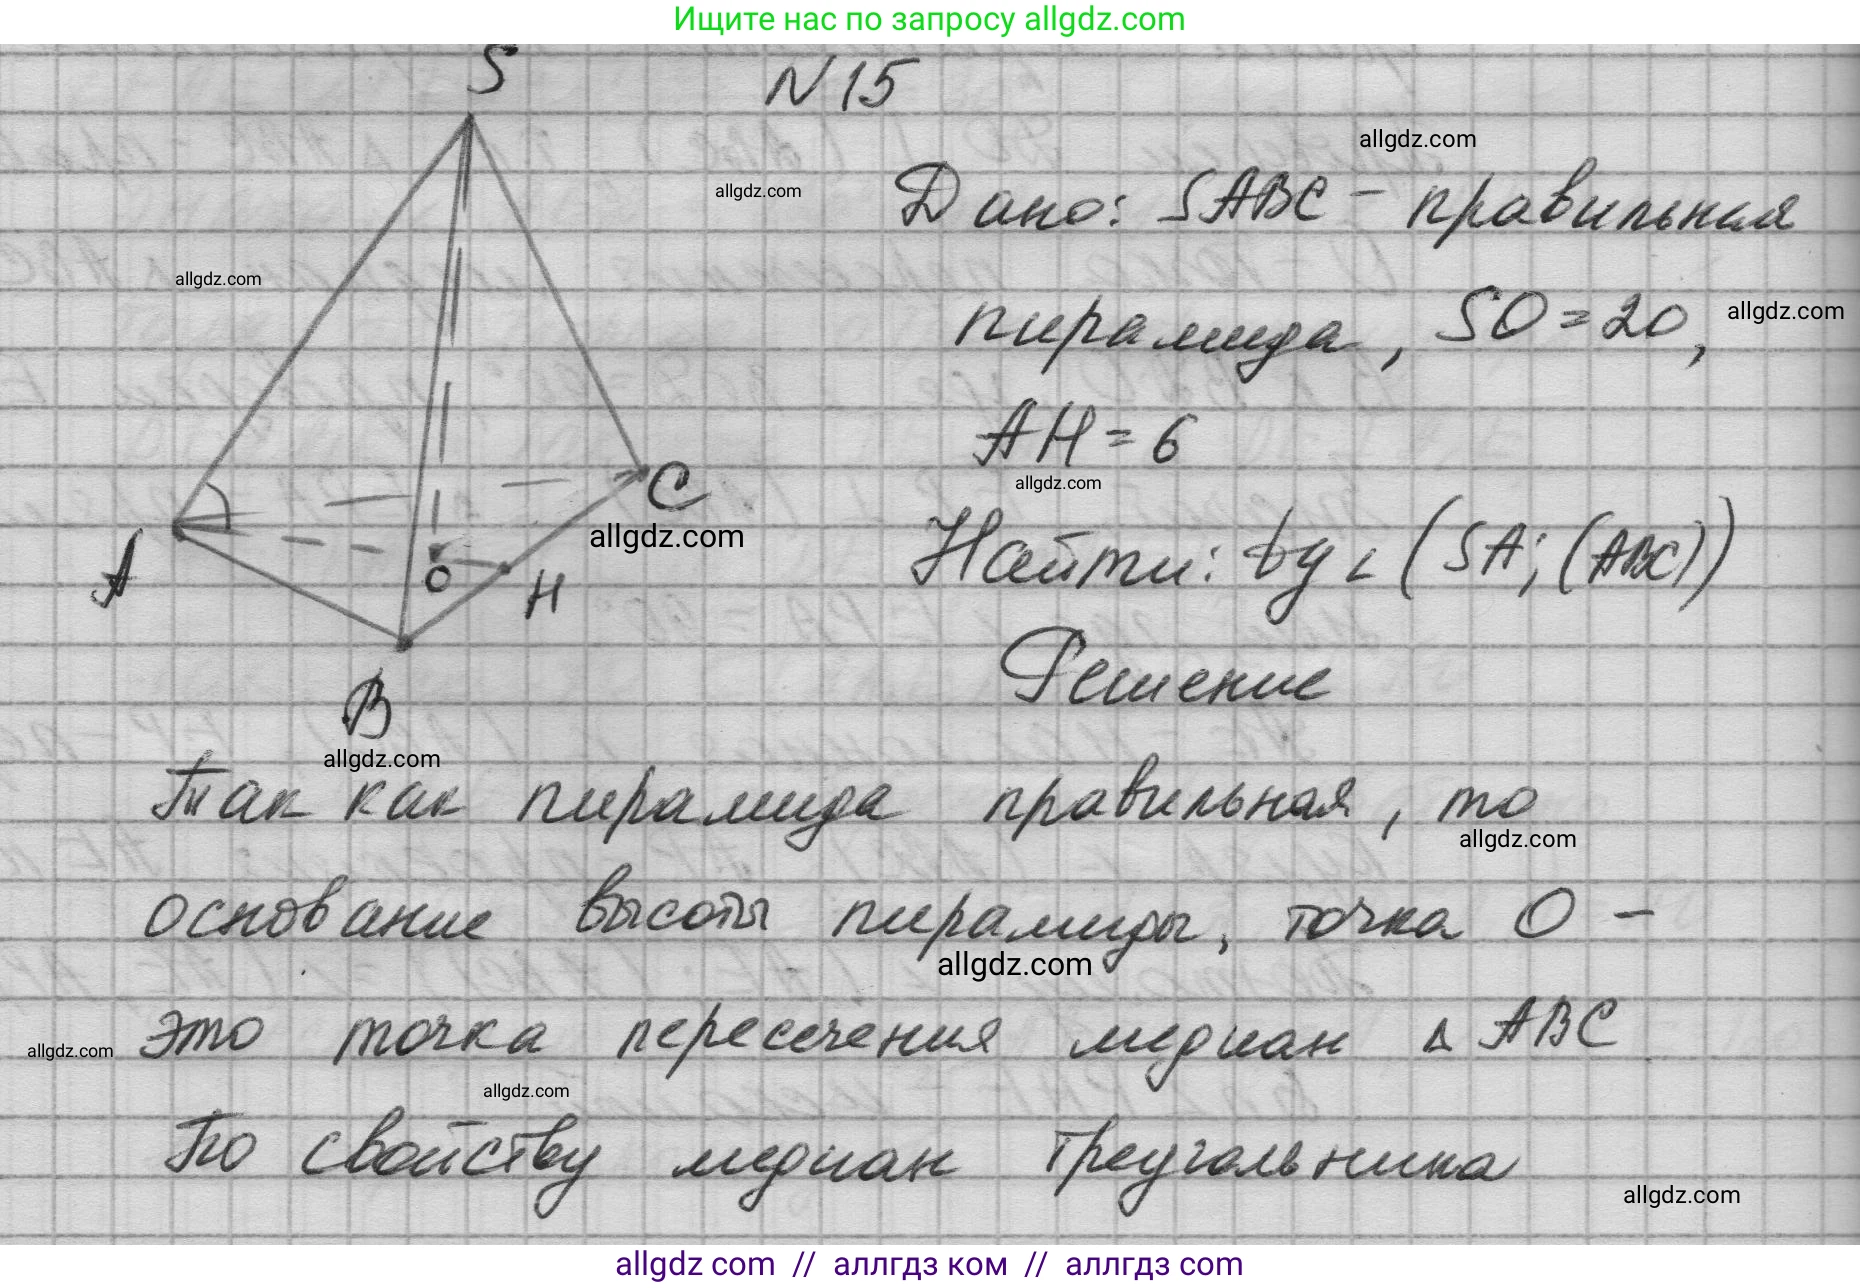 Ищите нас по запросу allgdz.com
S
N 15
allgdz.com
allgdz.com
Дано: SABC – правильная
allgdz.com
пирамида, SO = 20,
allgdz.com
AH = 6
allgdz.com
C
allgdz.com
Найти: tg ∠ (SA; (ABC))
A
O
H
Решение
B
allgdz.com
Так как пирамида правильная, то
allgdz.com
основание высоты пирамиды, точка O –
allgdz.com
это точка пересечения медиан △ ABC
allgdz.com
allgdz.com
По свойству медиан треугольника
allgdz.com
allgdz com // аллгдз ком // аллгдз com